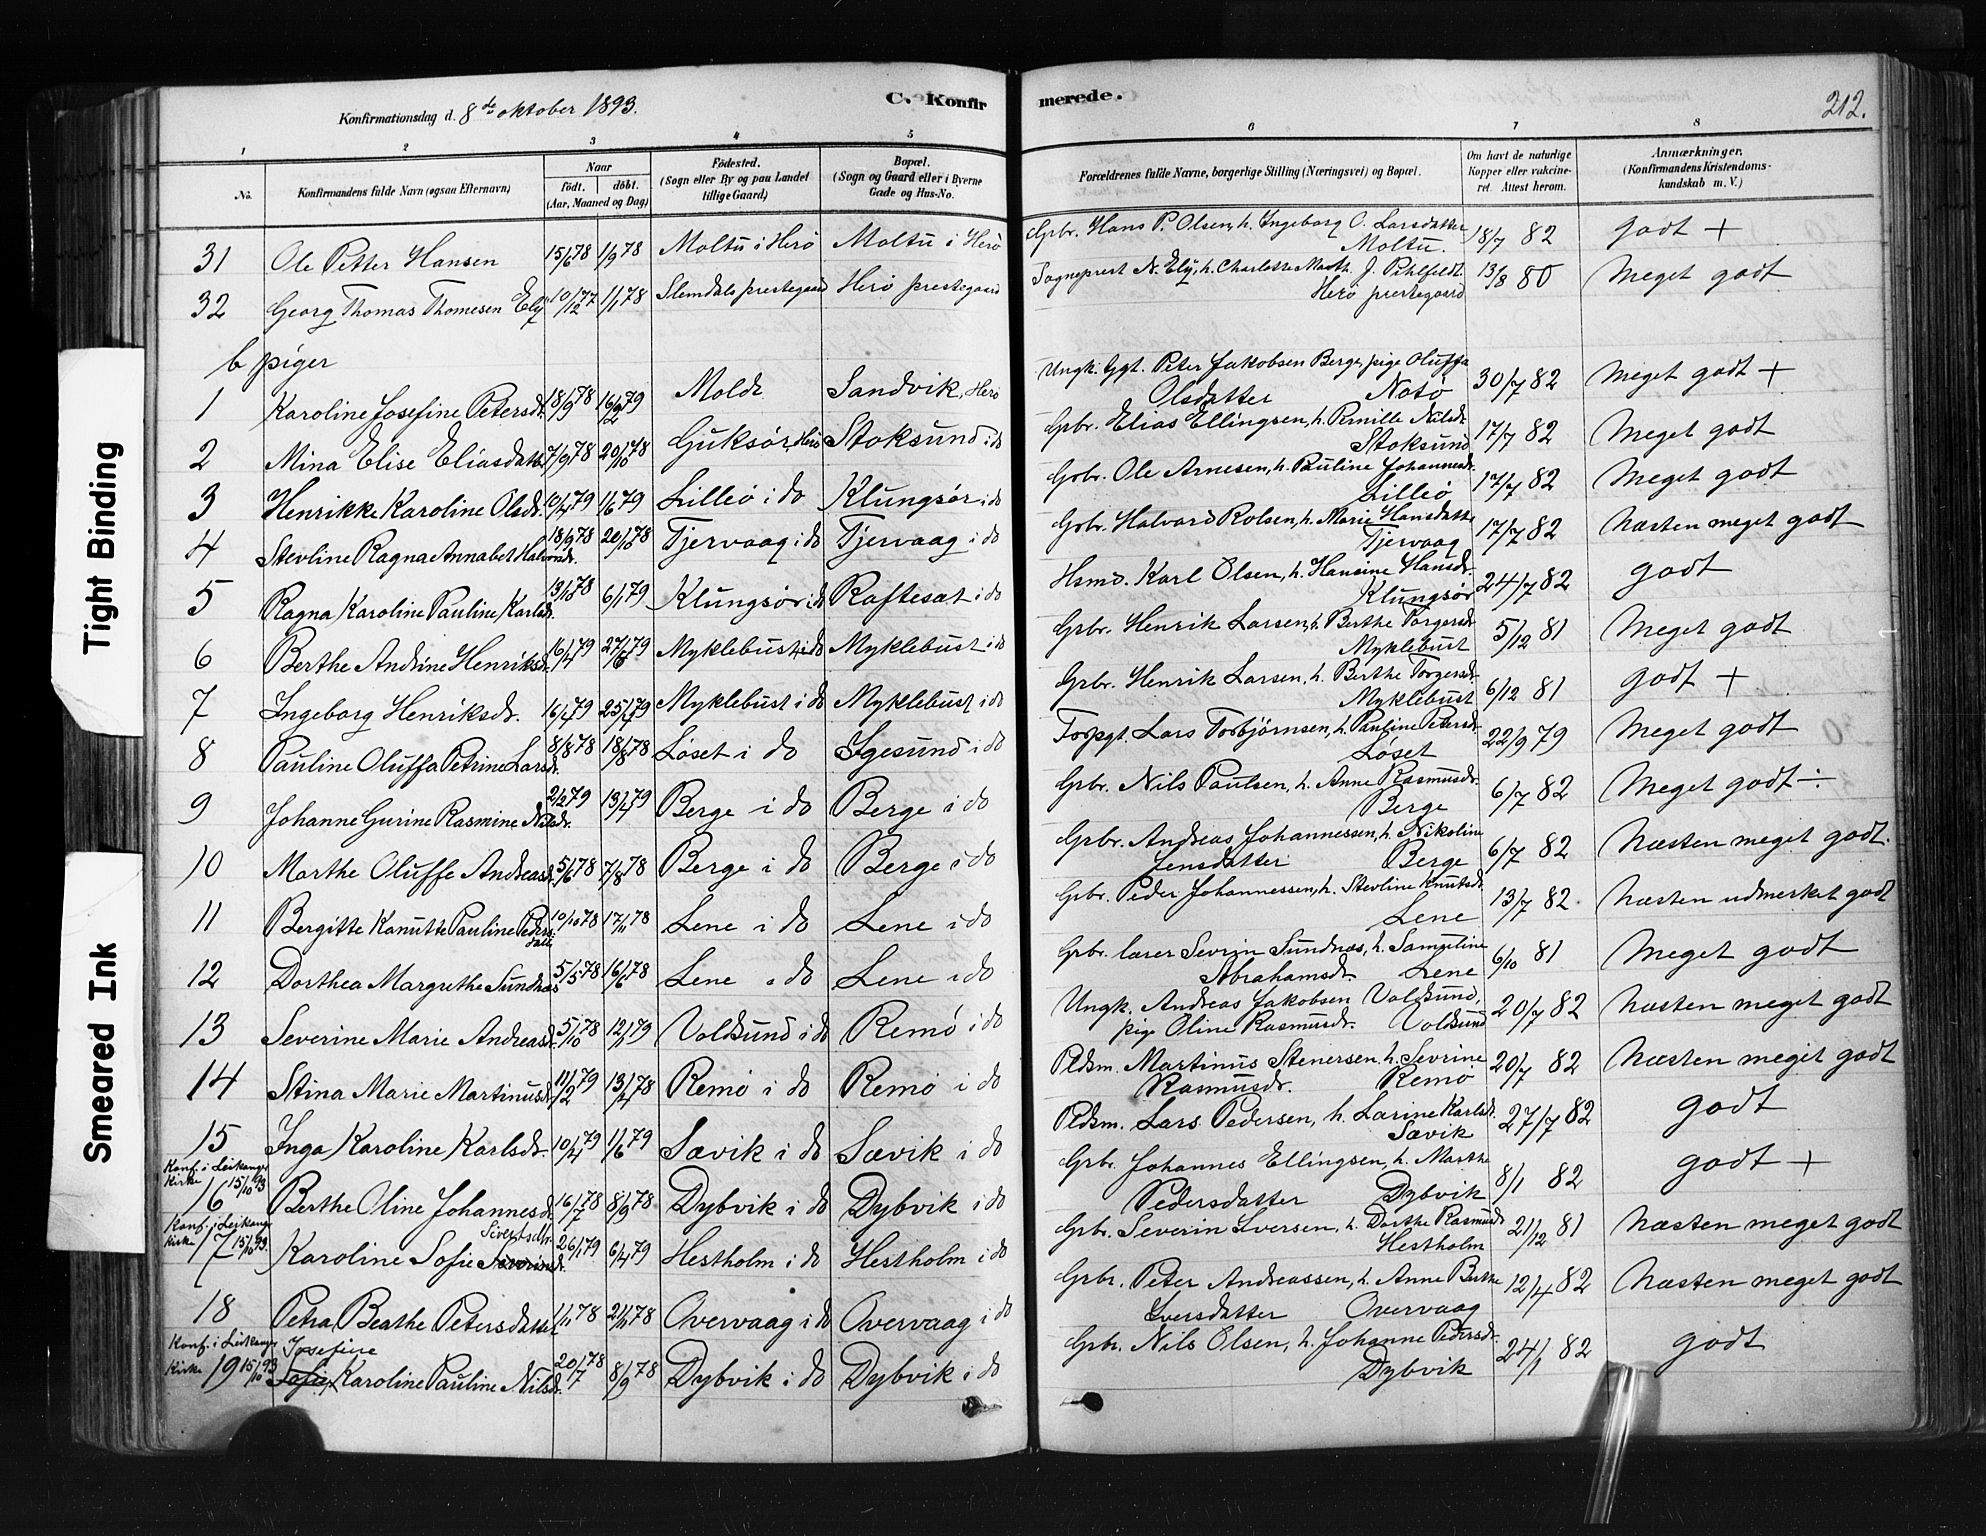 Konfirmationsdag d. 8de oktober 1893.
C. Konfir merede.
212.
1 2 3 4 5 6 7 8
No. Konfirmandens fulde Navn (ogsaa Efternavn) Naar født. døbt. (Aar, Maaned og Dag) Fødested. (Sogn eller By og paa Landet tillige Gaard) Bopæl. (Sogn og Gaard eller i Byerne Gade og Hus-No. Forældrenes fulde Navne, borgerlige Stilling (Næringsvei) og Bopæl. Om havt de naturlige Kopper eller vakcineret. Attest herom. Anmærkninger. (Konfirmandens Kristendomskundskab m. V.)
31 Ole Petter Hansen 15/6 78 1/9 78 Moltu i Herö Moltu i Herö Gbr. Hans P. Olsen, h. Ingeborg O. Larsdatter Moltu. 18/7 82 godt +
32 Georg Thomas Thomesen Ely 10/12 77 1/1 78 Slemdals prestegaard Herö prestegaard Sogneprest N. Ely, h. Charlotte Marth. J. Pihlfeldt Herö prestegaard 13/8 80 Meget godt
b piger
1 Karoline Josefine Petersdt. 18/9 78 16/2 79 Molde Sandvik, Herö Ungk. Ggt. Peter Jakobsen Berge, pige Oluffa Olsdatter Notö 30/7 82 Meget godt +
2 Mina Elise Eliasdatter 7/9 78 20/10 78 Gjuksör, Herö Stoksund i do Gbr. Elias Ellingsen, h. Pernille Nilsdt. Stoksund 17/7 82 Meget godt
3 Henrikke Karoline Olsdt. Lilleö i do Klungsör i do Gbr. Ole Arnesen, h. Pauline Johannesdt. Lilleö 17/7 82 Meget godt
4 Stevline Ragna Annabet Halvordt. 18/9 78 20/10 78 Tjervaag i do Tjervaag i do Gbr. Halvard Rolsen, h. Marie Hansdatter Tjervaag 17/7 82 Næsten meget godt
5 Ragna Karoline Pauline Karlsdt. 13/10 78 6/1 79 Klungsör i do Raftesæt i do Hsmd. Karl Olsen, h. Hansine Hansdt. Klungsör 24/7 82 godt
6 Berthe Andrine Henriksdt. 16/4 79 27/6 79 Myklebust i do Myklebust i do Gbr. Henrik Larsen, h. Berthe Torgersdt. Myklebust 5/12 81 Meget godt
7 Ingeborg Henriksdt. 16/4 79 25/4 79 Myklebust i do Myklebust i do Gbr. Henrik Larsen, h. Berthe Torgersdt. Myklebust 6/12 81 godt +
8 Pauline Oluffa Petrine Larsdt. 8/8 78 18/8 78 Löset i do Igesund i do Torpgt. Lars Torbjörnsen, h. Pauline Petersdt. Löset 22/9 79 Meget godt
9 Johanne Gurine Rasmine Nilsdt. 2/2 79 13/4 79 Berge i do Berge i do Gbr. Nils Paulsen, h. Anne Rasmusdt. Berge 6/7 82 Meget godt ÷
10 Marthe Oluffe Andreasdt. 5/6 78 7/8 78 Berge i do Berge i do Gbr. Andreas Johannessen, h. Nikoline Jensdatter Berge 6/7 82 Næsten meget godt.
11 Bergitte Kanutte Pauline Pedersdatt. 10/10 78 17/11 78 Lene i do Lene i do Gbr. Peder Johannessen, h. Stevline Knutsdt. Lene 13/7 82. Næsten udmerket godt
12 Dorthea Margrethe Sundnæs 5/5 78 16/6 78 Lene i do Lene i do Gbr. lærer Sevrin Sundnæs, h. Samueline Abrahamsdt. Lene 6/10 81 Meget godt
13 Severine Marie Andreasdt. 5/10 78 12/1 79 Voldsund i do Remö i do Ungk. Andreas Jakobsen Voldsund, pige Oline Rasmusdt. Voldsund 20/7 82 Næsten meget godt
14 Stina Marie Martinusdt. 11/2 79 13/4 78 Remö i do Remö i do Pldsm. Martinus Stenersen, h. Sevrine Rasmusdt. Remö 20/7 82 Næsten meget godt
15 Inga Karoline Karlsdt. 10/4 79 1/6 79 Sævik i do Sævik i do Pldsm. Lars Pedersen, h. Larine Karlsdt. Sævik 27/7 82 godt
Konf. i Leikanger kirke 15/10 93
16 Berthe Oline Johannesdt. 16/7 78 8/9 78 Dybvik i do Dybvik i do Gbr. Johannes Ellingsen, h. Marthe Pedersdatter Dybvik 8/1 82 godt +
Konf. i Leikanger kirke 15/10 93.
17 Karoline Sofie Severinsdt. 26/1 79 6/4 79 Hestholm i do Hestholm i do Gbr. Severin Iversen, h. Dorthe Rasmusdt Hestholm 21/12 81 Næsten meget godt
18 Petra Beathe Petersdatter 1/11 78 24/11 78 Overvaag i do Overvaag i do Gbr. Peter Andreassen, h. Anne Berthe Iversdatter Overvaag 12/4 82 Næsten meget godt
Konf. i Leikanger kirke 15/10 93
19 Josefine Sofie Karoline Pauline Nilsdt. 20/7 78 8/9 78 Dybvik i do Dybvik i do Gbr. Nils Olsen, h. Johanne Pedersdt. Dybvik 24/1 82 godt
Tight Binding
Smeared Ink